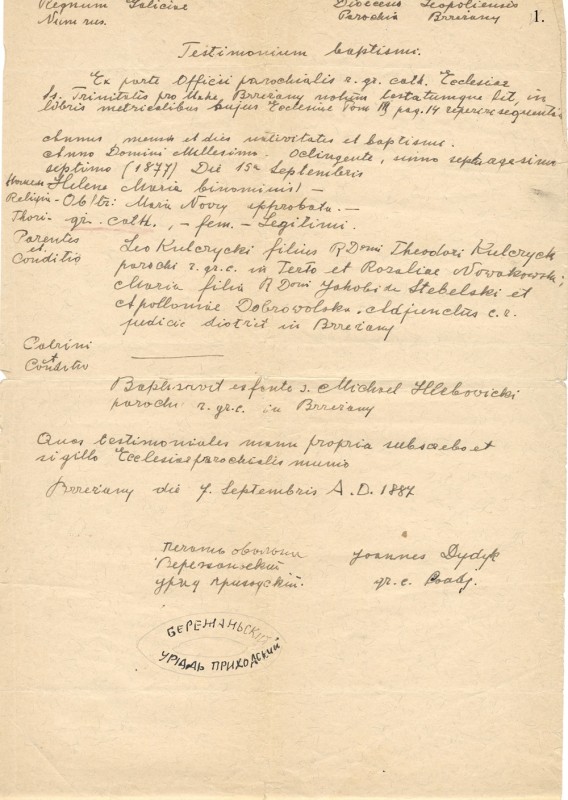 Regnum Galiciae
Num rus.
Dioecesis Leopoliensis
Parochia Brzeżany
1.
Testimonium baptismi.
Ex parte Officii parochialis r. gr. cath. Ecclesiae
Ss. Trinitatis pro Brzeżany notum testatumque fit, in
libris metricalibus hujus Ecclesiae Tom pag. 14 reperiri sequentia
Annus mensis et dies nativitatis et baptismi.
Anno Domini Millesimo. Octingente, simo septuagesimo
septimo (1877) Die 15a Septembris
Helena Maria binominis! —
Religia - Obstri: Maria Novy approbata. —
Thori - gr. cath., - fem. - Legitimi.
Parentes
et
Conditio
Leo Kulczycki filius R Domi Theodori Kulczyck
parochi r. gr. c. in Terto et Rozaliae Nowakowska;
Maria filia R Domi Jakobi de Stebelski et
Apolloniae Dobrowolska. Adjunctus c. r.
judicii district in Brzeżany
Patrini
et
Conditio
Baptisavit Michael Hlebovicki
parochi r. gr. c. in Brzeżany
Quas testimoniales manu propria subscribo et
sigillo Ecclesiae parochialis munio
Brzeżany die 7. Septembris A. D. 1887
печать
Бережанський
уряд приходский.
Joannes Dydyk
gr. c.
БЕРЕЖАНЬСКІЙ
УРЯДЪ ПРИХОДСЬКИЙ